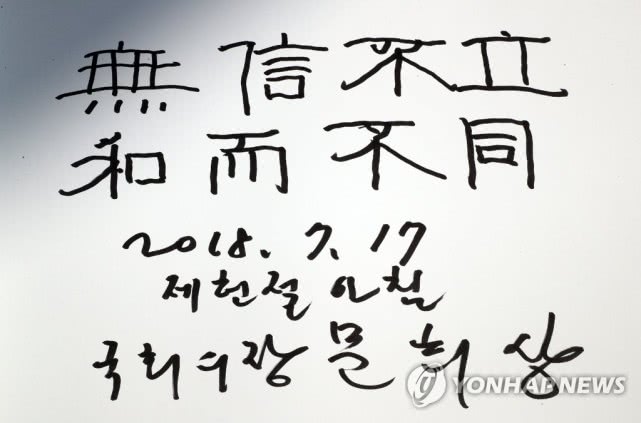 無信不立
和而不同
2018. 7. 17
제헌절 아침
국회의장 문희상
YONHAP NEWS